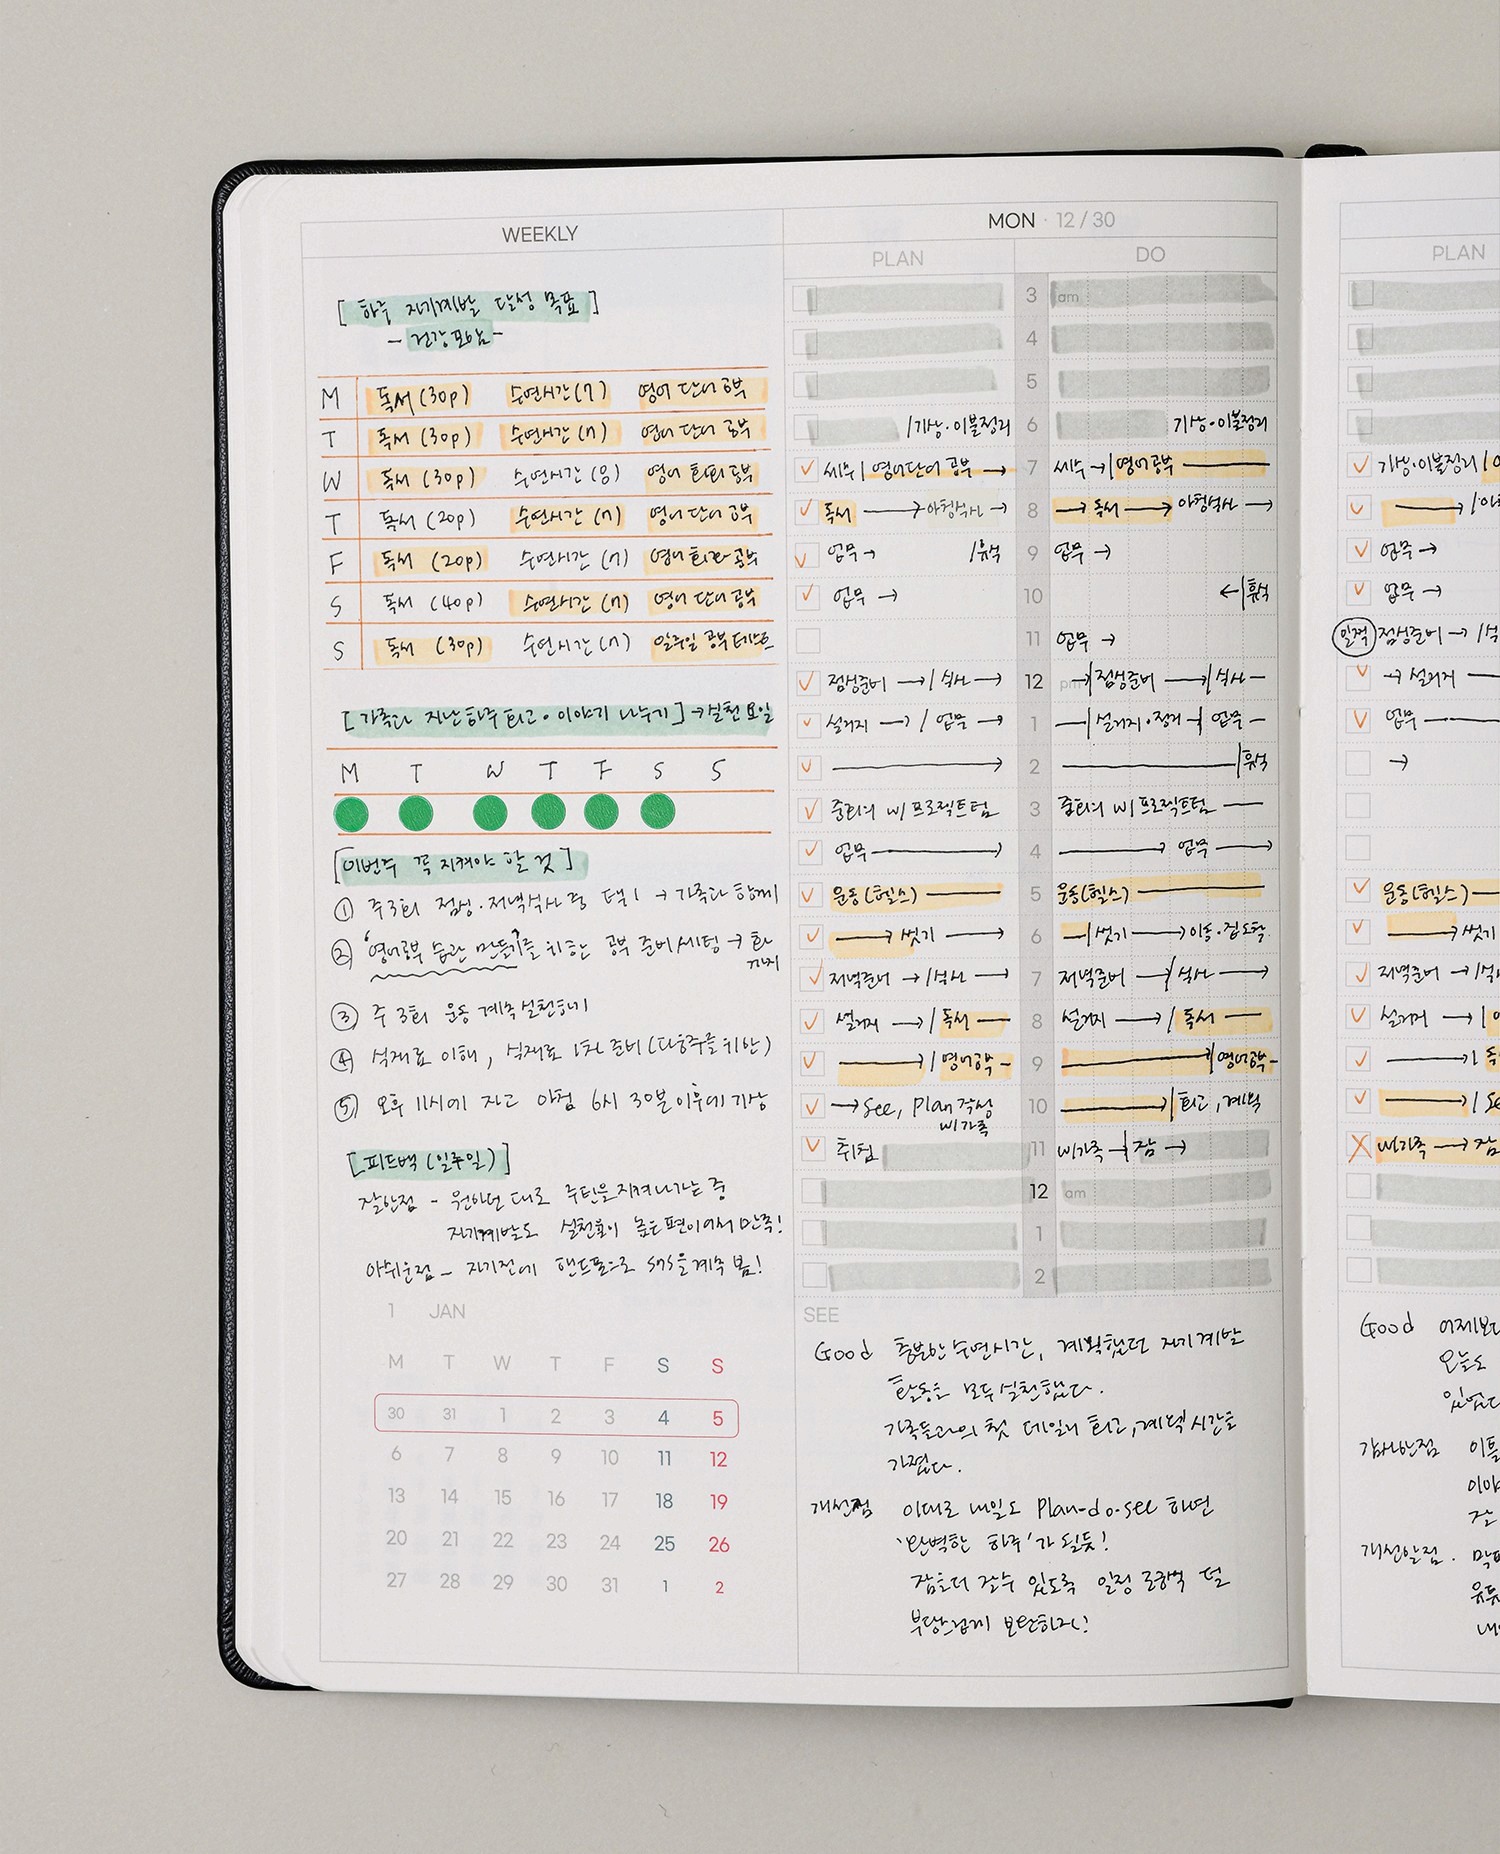 WEEKLY
[ 하루 자기계발 달성 목표 ]
- 건강모닝 -
M 독서 (30p) 수면시간 (7) 영어 단어 공부
T 독서 (30p) 수면시간 (7) 영어 단어 공부
W 독서 (30p) 수면시간 (8) 영어 회화 공부
T 독서 (20p) 수면시간 (7) 영어 단어 공부
F 독서 (20p) 수면시간 (7) 영어 회화 공부
S 독서 (40p) 수면시간 (7) 영어 단어 공부
S 독서 (30p) 수면시간 (7) 일주일 공부 테스트
[ 가족과 지난 하루 회고·이야기 나누기 ] → 실천 요일
M T W T F S S
[이번주 꼭 지켜야 할 것 ]
① 주3회 점심·저녁식사 중 택1 → 가족과 함께
② '영어공부 습관 만들기'를 위한 공부 준비 세팅 → 화까지
③ 주 3회 운동 계속 실천하기
④ 식재료 이해, 식재료 1차 준비 (다음주를 위한)
⑤ 오후 11시에 자고 아침 6시 30분 이후에 기상
[피드백 (일주일)]
잘한점 - 원하던 대로 루틴을 지켜나가는 중
자기계발도 실천율이 높은 편이어서 만족!
아쉬운점 - 자기전에 핸드폰으로 SNS을 계속 봄!
1 JAN
M T W T F S S
30 31 1 2 3 4 5
6 7 8 9 10 11 12
13 14 15 16 17 18 19
20 21 22 23 24 25 26
27 28 29 30 31 1 2
MON · 12 / 30
PLAN DO
3 am
4
5
/기상·이불정리 6 기상·이불정리
세수 / 영어단어 공부 → 7 세수 → | 영어공부
독서 → 아침식사 → 8 → 독서 → 아침식사 →
업무 → /휴식 9 업무 →
업무 → 10 ← |휴식
11 업무 →
점심준비 → / 식사 → 12 pm → |점심준비 → |식사 -
설거지 → / 업무 → 1 - |설거지·정리 → | 업무 -
→ 2 |휴식
줌회의 w/ 프로젝트팀 3 줌회의 w/ 프로젝트팀 -
업무 → 4 → 업무 →
운동(헬스) - 5 운동(헬스) -
→ 씻기 → 6 - |씻기 → 이동·집도착
저녁준비 → /식사 → 7 저녁준비 → |식사 →
설거지 → / 독서 - 8 설거지 → / 독서 -
/ 영어공부 - 9 |영어공부 -
→ See, Plan 작성 10 → | 회고, 계획
w/가족
취침 11 w/가족 → | 잠 →
12 am
1
2
SEE
Good 충분한 수면시간, 계획했던 자기계발
활동을 모두 실천했다.
가족들과의 첫 데일리 회고, 계획 시간을
가졌다.
개선점 이대로 내일도 Plan-do-see 하면
'완벽한 하루'가 될듯!
잠을 더 잘수 있도록 일정 덜
PLAN
기상·이불정리 /
→ /
업무 →
업무 →
일찍 점심준비 → /식
→ 설거지
업무
→
운동(헬스)
→ 씻기
저녁준비 → /식
설거지 → /
→ /독
→ / Se
w/가족 → 잠
Good 어제보다
오늘도
있었다
감사한점
이야
잘
개선할점.